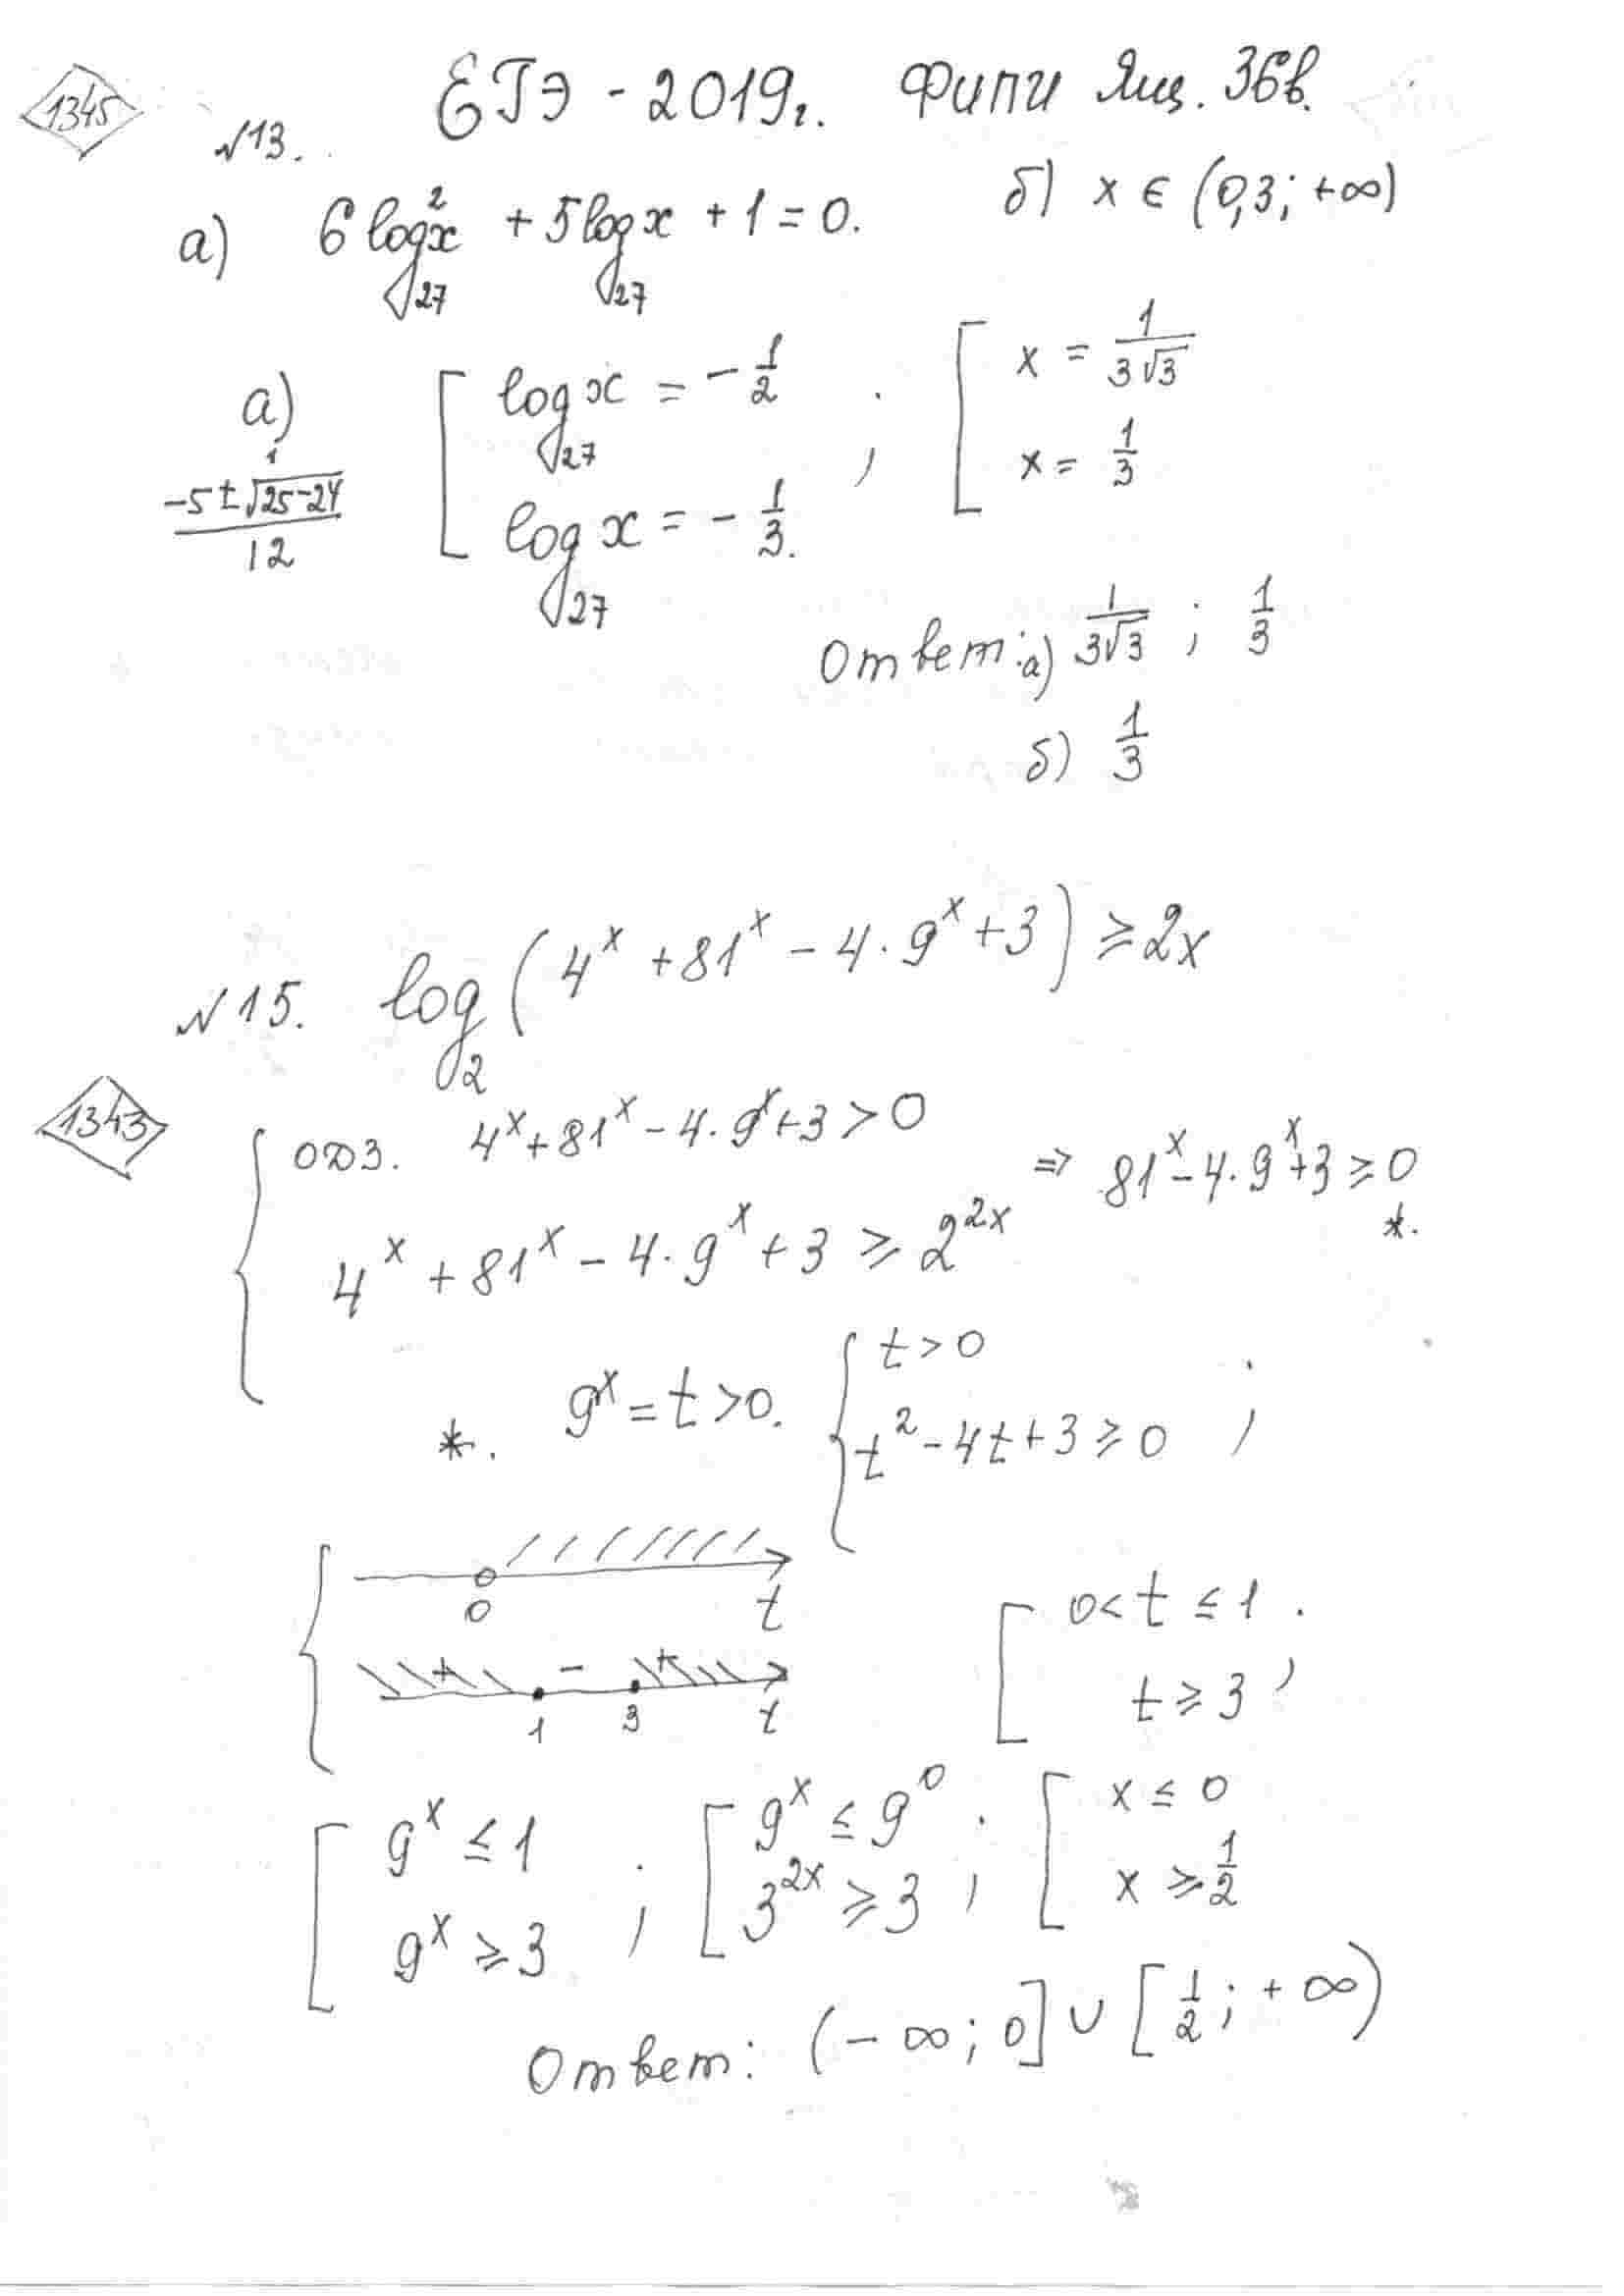 1345 ЕГЭ - 2019г. ФИПИ Ящ. 36в.
№13.
а) 6 log²₂₇ x + 5 log₂₇ x + 1 = 0. б) x ∈ (0,3; +∞)
а) [ log₂₇ x = - 1/2 ; [ x = 1/(3√3)
(-5 ± √(25-24))/12 1 log₂₇ x = - 1/3. x = 1/3
Ответ: а) 1/(3√3) ; 1/3
б) 1/3
№15. log₂ (4^x + 81^x - 4·9^x + 3) ≥ 2x
1343
{ ОДЗ. 4^x + 81^x - 4·9^x + 3 > 0
⇒ 81^x - 4·9^x + 3 ≥ 0 *.
4^x + 81^x - 4·9^x + 3 ≥ 2^2x
*. 9^x = t > 0. { t > 0
t² - 4t + 3 ≥ 0 ;
0 t
+ - +
1 3 t
[ 0 < t ≤ 1 ;
t ≥ 3
[ 9^x ≤ 1 ; [ 9^x ≤ 9^0 ; [ x ≤ 0
9^x ≥ 3 3^2x ≥ 3 x ≥ 1/2
Ответ: (-∞; 0] ∪ [1/2; +∞)